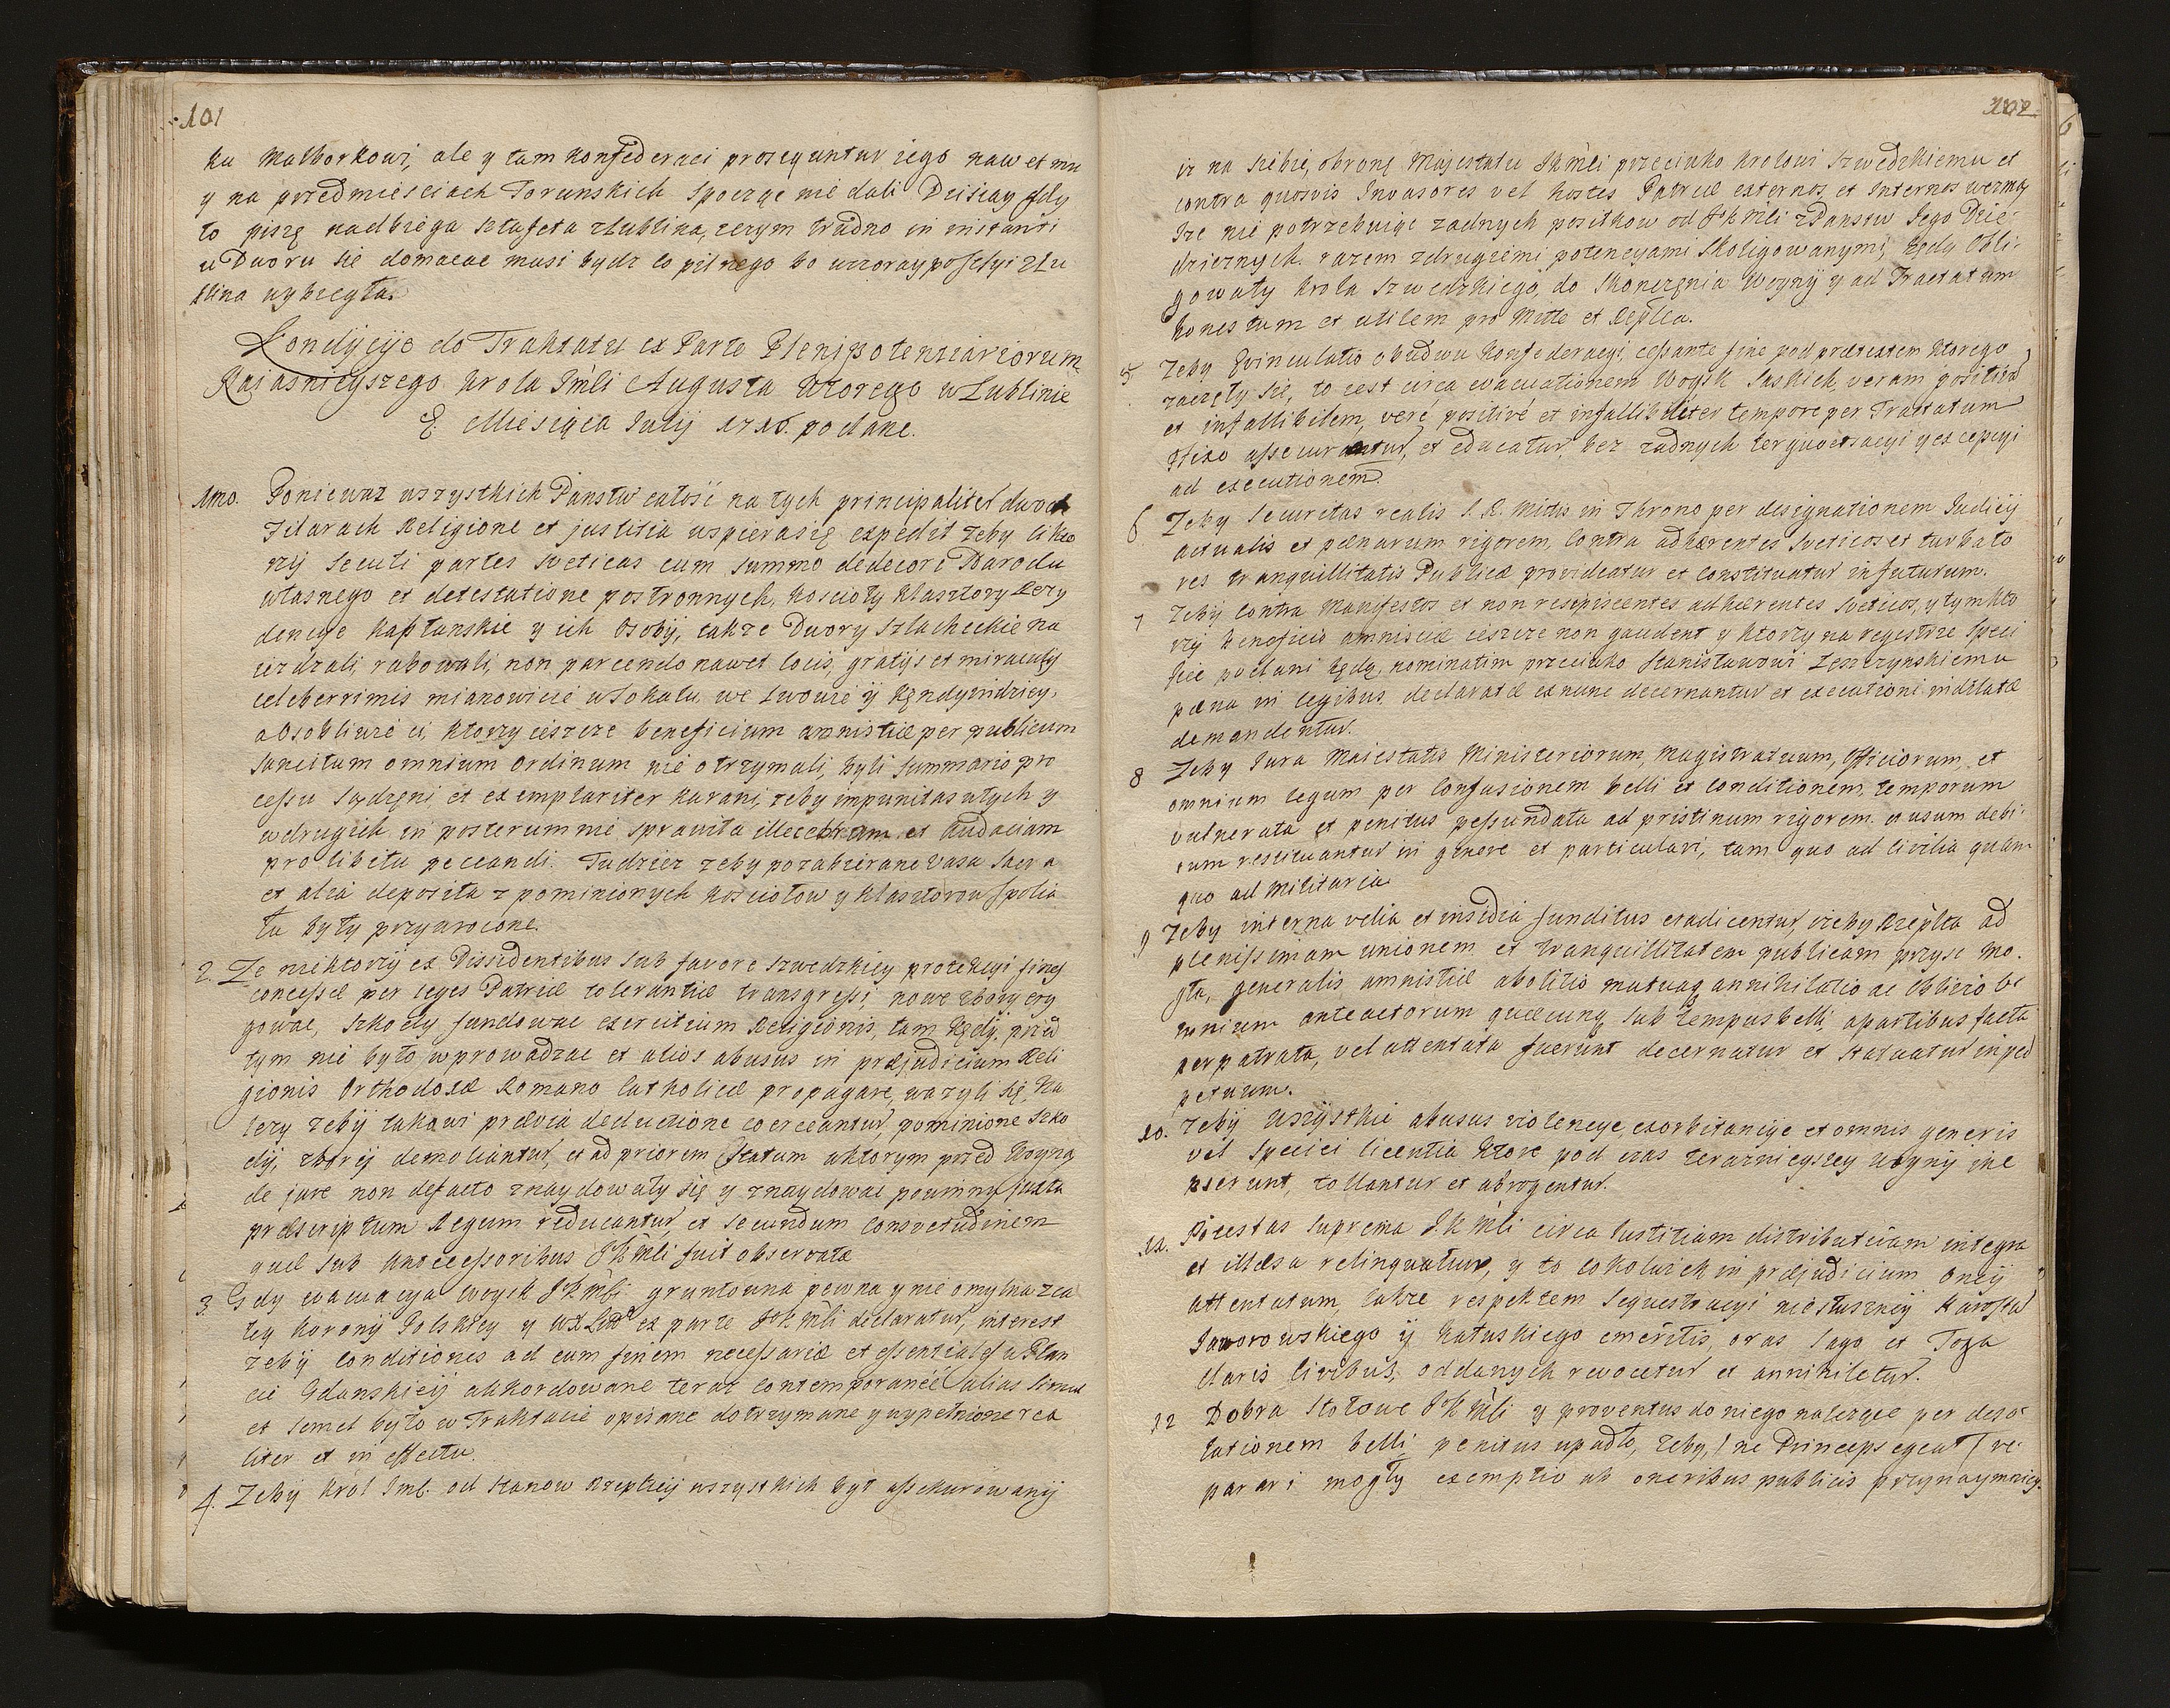 101
ku Malborkowi, ale y tam konfederaci prosequntur iego nawet mu
y na przedmiesciach Torunskich Spocząc nie dali Dzisiay gdy
to piszę nadbiega sztafeta zLublina, czym trudno in instanti
u Dworu sie domacac musi bydz co pilnego bo wczoray possłyi zLu
blina wybiegła.
Kondycije do Traktatu ex Parte Plenipotentiariorum
Naiasnieyszego Krola Jmći Augusta Wtorego w Lublinie
Miesiąca Julij 1716. podane.
1mo. Poniewaz wszystkich Panstw całość na tych principaliter dwoch
Filarach Religione et justitia wspiera się expedit zeby ci kto
rzy Secuti partes Sveticas cum Summo dedecore Narodu
własnego et detestatione postronnych, koscioły klasztory Rezy
dencye kapłanskie y ich Osoby, takze Dwory szlacheckie na
iezdzali, rabowali, non parcendo nawet locis, gratijs et miraculis
celeberrimis mianowicie w Sokalu, we Lwowie y
a Osobliwie ci, ktorzy ieszcze beneficium amnistiæ per publicum
Sancitum omnium Ordinum nie otrzymali, byli Summario pro
cessu Sądzeni et exemplariter karani, zeby impunitas w tych y
w drugich in posterum nie sprawiła illecebram et Audaciam
pro libitu peccandi. Tudziez zeby pozabierane vasa Sacra
et alia deposita z pominionych kosciołow y klasztorow spolia
ta były przywrocone.
2. Ze niektorzy ex Dissidentibus Sub favore Szwedzkiey protekcyi fines
concessæ per leges Patriæ tolerantiæ transgressi, nowe zbory ery
gowac, Szkoły fundowac exercitium Religionis, tam kędy, przed
tym nie było wprowadzac et alios abusus in præjudicium Reli
gionis Orthodoxæ Romano Catholicæ propagare, wazyli się, Na
lezy zeby takowi prævia deductione coerceantur, pominione Szko
ły, zbory demoliantur, et ad priorem Statum w ktorym przed Woyną
de jure non defacto znaydowały się y znaydowac powinny juxta
præscriptum Legum reducantur, et Secundum Consvetudinem
quæ Sub Antecessoribus JKMći fuit observata
3. Gdy ewacuacya Woysk JKMći gruntowna pewna y nie omylna z ca
łey Korony Polskiey y WXLitt ex parte JKMći declaratur, interest
zeby Conditiones ad eum finem necessariæ et essentiales w Plan
cie Gdanskiey akkordowane teraz Contemporanee alias Simul
et Semel było w Traktacie opisane dotrzymane y wypełnione rea
liter et in effectu.
4. Zeby Krol Jmć. od Stanow Rzeptcy wszystkich był assekurowany
102
iz na Siebie, obronę Majestatu JKmći przeciwko Krolowi Szwedzkiemu et
contra quosvis Invasores vel hostes Patriæ externos et Internos wezmą
Ize nie potrzebuiąc zadnych positkow od JKMći z Panstw Jego Dzie-
dzicznych. razem zdrugiemi potencyami Skoligowanymi, będą Obli-
gowały Krola Szwedzkiego, do Skonczęnia Woyny y ad Tractatum
honestum et utilem pro Mtte et Repca.
5 Zeby Evinculatio obudwu Konfederacyi, cessante fine pod prætextem ktorego
zaczęły się, to iest circa evacuationem Woysk Saskich, veram positivã
et infallibilem, verè positivè et infallibiliter tempore per Tractatum
fixo assecurantur, et educatur, bez zadnych tergiversacyi y excepcyi
ad executionem.
6 Zeby Securitas realis S. R. Mttis in Throno per designationem Judicij
actualis et pœnarum rigorem, Contra adhærentes Sveticos et turbato
res tranquillitatis Publicæ provideatur et Constituatur in futurum.
7 Zeby Contra Manifestos et non resipiscentes adhærentes Sveticos, y tym kto
rzy beneficio amnistiæ ieszcze non gaudent y ktorzy na regestrze Speci
fice podani będą nominatim przeciwko Stanisławowi Leszczynskiemu
pœna in legibus declarata ex nunc decernantur et executioni indilatè
demandentur.
8 Zeby Jura Maiestatis Ministeriorum, Magistratuum, Officiorum, et
omnium legum per Confusionem belli et Conditionem, temporum
vulnerata et penitus pessundata ad pristinum rigorem et usum debi-
tum restituantur in genere et particulari, tam quo ad Civilia quàm
quo ad Militaria
9 Zeby interna velia et insidia funditus eradicentur, icby Rzeplta ad
plenissimam unionem et tranquillitatem publicam przysc mo.
gła, generalis amnistiæ abolitio mutuaq annihilatio ac Oblivio
omnium anteactorum quæcunq Sub tempus belli, apartibus facta
perpetrata, vel attentata fuerunt decernatur et Statuatur inper
petuum.
10. Zeby Wszystkie abusus violencye, exorbitancye et omnis generis
vel Speciei licentia ktore pod czas terazneyszey Woyny ine
pserunt, tollantur et abrogentur.
11. Potestas Suprema J.K Mći circa Justitiam distributivam integra
et illæsa relinquatur, y to cokolwiek in præjudicium Oney
attentatum, takze respektem Sequestracyi niesłuszney Starostw
Jaworowskiego y Kałuskiego emeritis, oras Sago et Toga
Claris Civibus, oddanych revocetur et annihiletur.
12 Dobra Stołowe JKMći y proventus do niego nalezące per deso-
lationem belli penitus upadło, zeby, / ne Princeps egeat / re-
parari mogły exemptio ab oneribus publicis przynaymniey